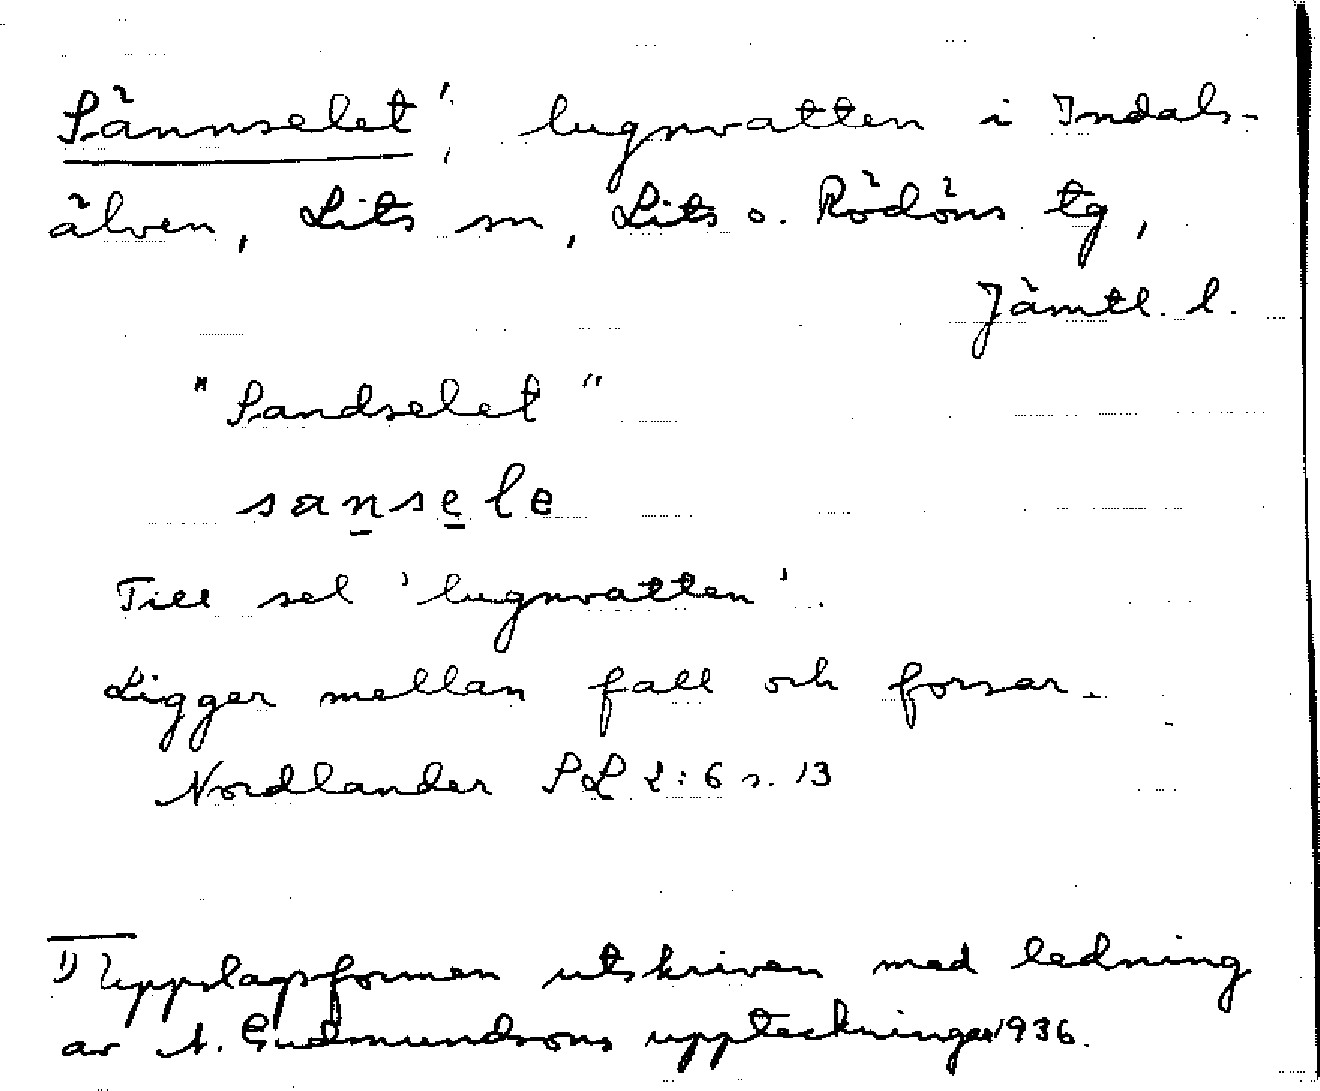 Sännselet¹, lugnvatten i Indals-
älven, Lits sn, Lits o. Rödöns tg,
Jämtl. l.
"Sandselet"
sansele
Till sel 'lugnvatten'.
Ligger mellan fall och forsar.
Nordlander SL 2:6 s. 13
1) Uppslagsformen utskriven med ledning
av A. Gudmundsons uppteckningar 1936.